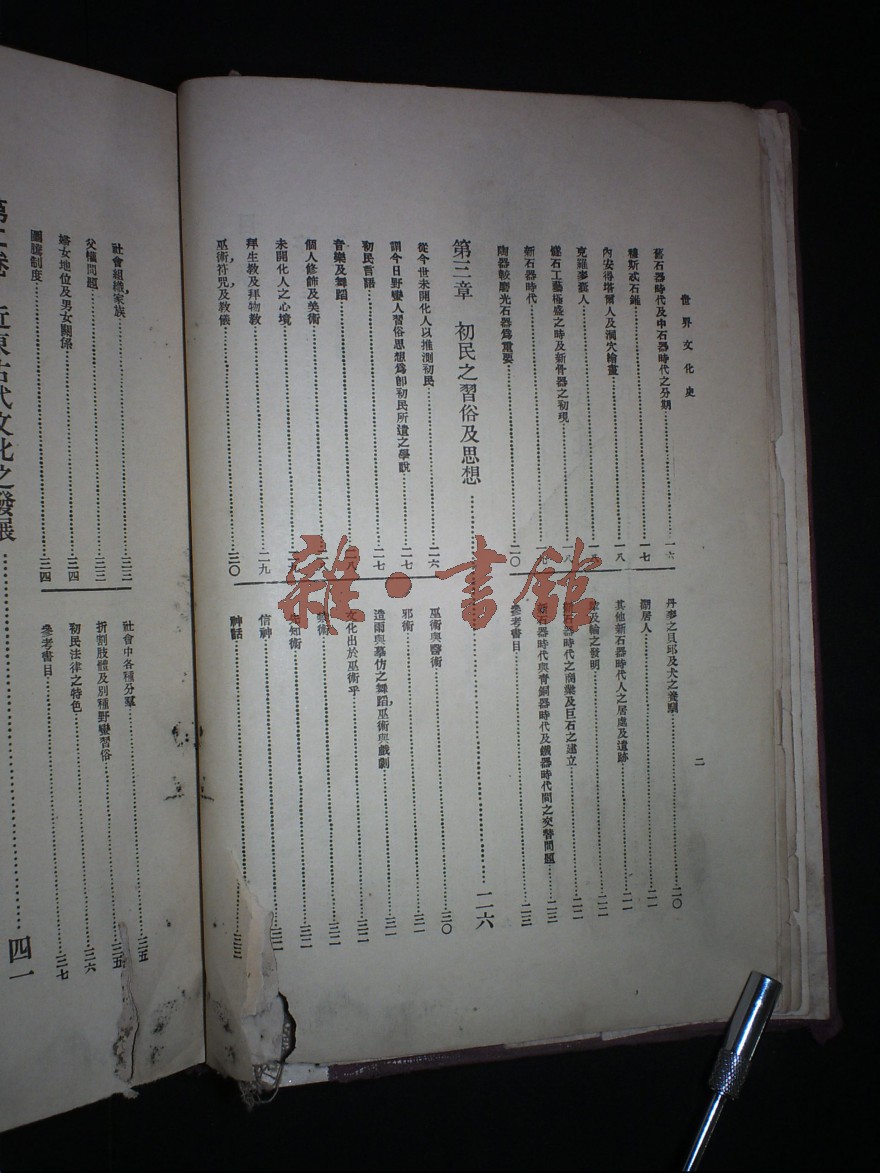 世界文化史
二
舊石器時代及中石器時代之分期 一六
一七
內安得塔爾人及洞穴繪畫 一八
克羅麥囊人
燧石工藝極盛之時及新骨器之初現
新石器時代
陶器較磨光石器爲重要 二〇
丹麥之貝邱及犬之豢馴 二〇
湖居人 二一
其他新石器時代人之居處及遺跡 二一
及輪之發明 二二
石器時代之商業及巨石之建立 二二
石器時代與青銅器時代及鐵器時代間之交替問題 二三
參考書目 二三
第三章 初民之習俗及思想 二六
從今世未開化人以推測初民 二六
謂今日野蠻人習俗思想爲卽初民所遺之學說 二七
初民言語 二七
音樂及舞蹈 二八
個人修飾及美術
未開化人之心境
拜生教及拜物教 二九
巫術,符咒及教儀 三〇
巫術與醫術 三〇
邪術 三一
造雨與摹仿之舞蹈,巫術與戲劇 三一
文化出於巫術乎 三二
術 三二
先知術 三二
信神 三二
神話 三三
社會組織家族, 三三
父權問題 三三
婦女地位及男女關係 三四
圖騰制度 三四
社會中各種分羣 三五
折割肢體及別種野蠻習俗 三五
初民法律之特色 三六
參考書目 三七
近東古代文化之發展 四一
雜·書館